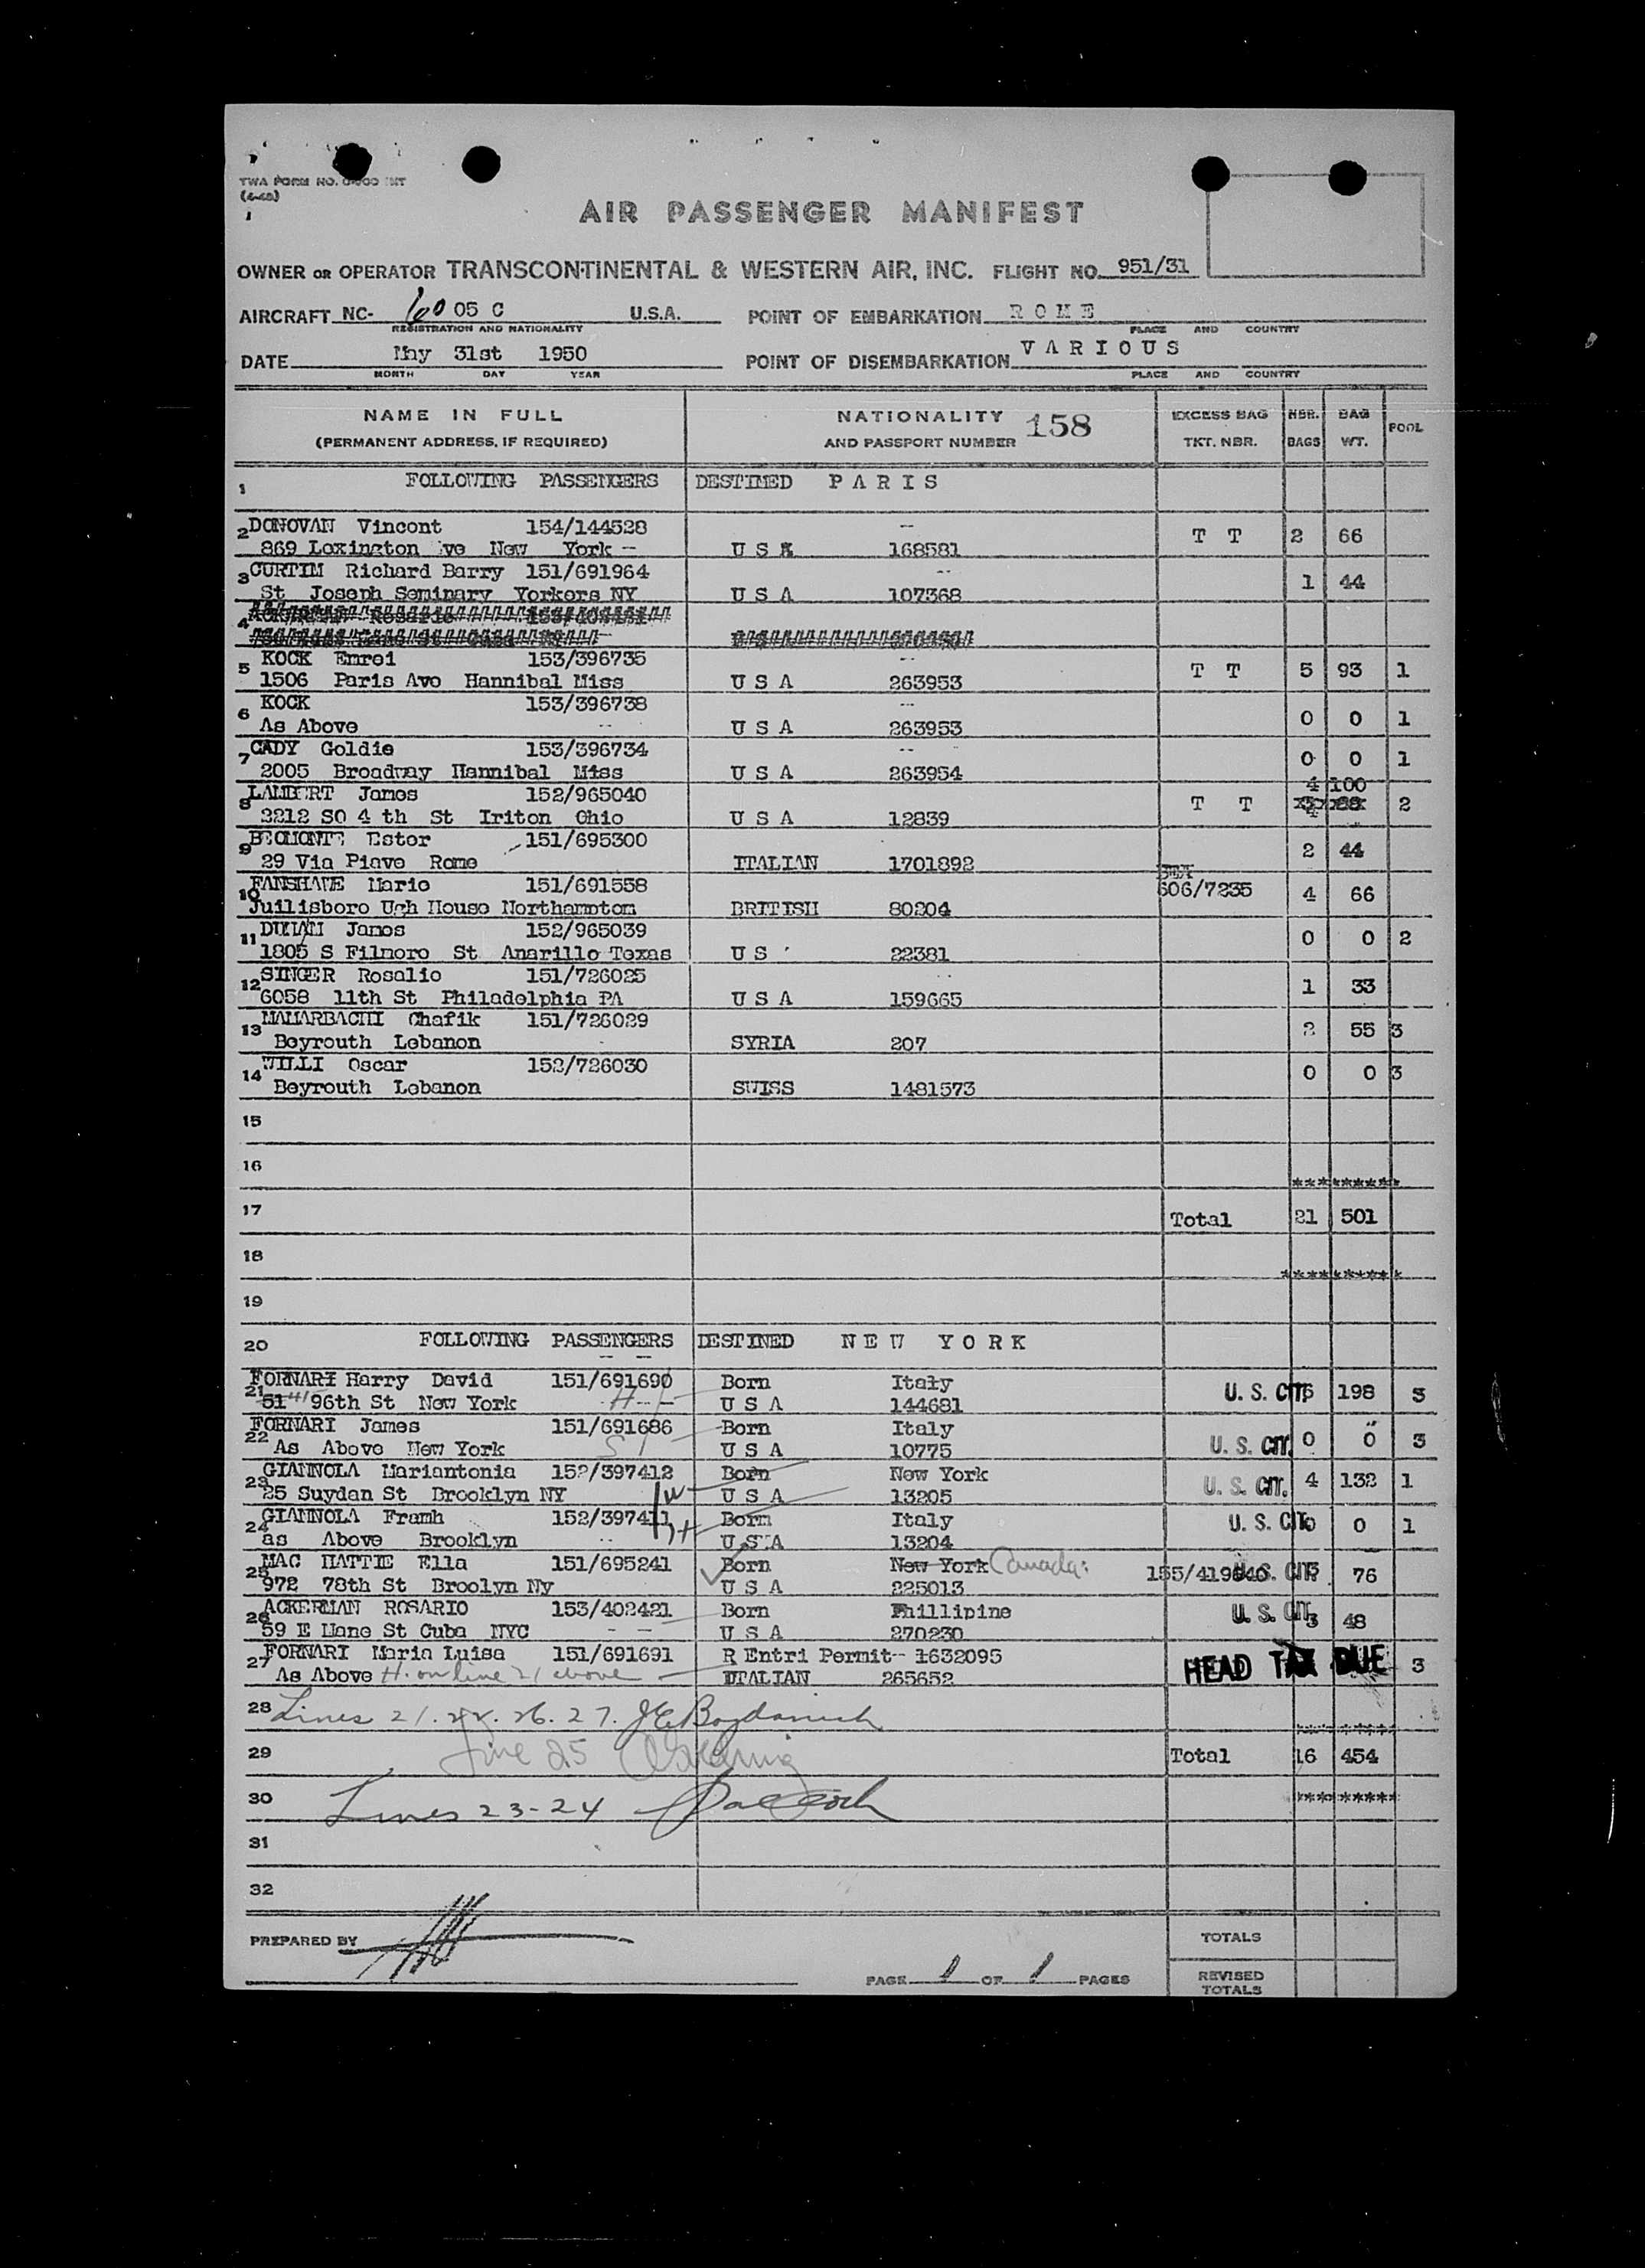 TWA FORM NO.
AIR PASSENGER MANIFEST
OWNER OR OPERATOR TRANSCONTINENTAL & WESTERN AIR, INC. FLIGHT NO. 951/31
AIRCRAFT NC- 6005 C U.S.A. POINT OF EMBARKATION R O M E
REGISTRATION AND NATIONALITY PLACE AND COUNTRY
DATE May 31st 1950 POINT OF DISEMBARKATION V A R I O U S
MONTH DAY YEAR PLACE AND COUNTRY
NAME IN FULL NATIONALITY 158 EXCESS BAG NBR. BAG POOL
(PERMANENT ADDRESS, IF REQUIRED) AND PASSPORT NUMBER TKT. NBR. BAGS WT.
1 FOLLOWING PASSENGERS DESTINED P A R I S
2 DONOVAN Vincent 154/144528 -- T T 2 66
869 Lexington ve New York -- U S A 168581
3 CURTIM Richard Barry 151/691964 -- 1 44
St Joseph Seminary Yorkers NY U S A 107368
4
5 KOCK Emrei 153/396735 -- T T 5 93 1
1506 Paris Ave Hannibal Miss U S A 263953
6 KOCK 153/396738 -- 0 0 1
As Above -- U S A 263953
7 CADY Goldie 153/396734 -- 0 0 1
2005 Broadway Hannibal Miss U S A 263954
4 100
8 LAMBERT James 152/965040 T T 2
3212 SO 4 th St Iriton Ohio U S A 12839
9 Ester 151/695300 2 44
29 Via Piave Rome ITALIAN 1701892
10 FANSHAVE Mario 151/691558 BEA 606/7235 4 66
Juilisboro Ugh House Northampton BRITISH 80204
11 James 152/965039 0 0 2
1805 S Filmore St Amarillo Texas U S 22381
12 SINGER Rosalie 151/726025 1 33
6058 11th St Philadelphia PA U S A 159665
13 MAHARBACHI Chafik 151/726029 2 55 3
Beyrouth Lebanon SYRIA 207
14 WILLI Oscar 152/726030 0 0 3
Beyrouth Lebanon SWISS 1481573
15
16
*********
17 Total 21 501
18
*********
19
20 FOLLOWING PASSENGERS DESTINED N E W Y O R K
21 FORNARI Harry David 151/691690 Born Italy U. S. CIT. 6 198 3
51 41 96th St New York H U S A 144681
22 FORNARI James 151/691686 Born Italy U. S. CIT. 0 0 3
As Above New York S U S A 10775
23 GIANNOLA Mariantonia 152/397412 Born New York U. S. CIT. 4 132 1
25 Suydan St Brooklyn NY W U S A 13205
24 GIANNOLA Framh 152/397411 Born Italy U. S. CIT. 0 0 1
as Above Brooklyn H U S A 13204
25 MAC HATTIE Ella 151/695241 Born New York Canada: U. S. CIT. 3 76
972 78th St Broolyn Ny U S A 225013
26 ACKERMAN ROSARIO 153/402421 Born Phillipine U. S. CIT. 3 48
59 E Mane St Cuba NYC -- U S A 270230
27 FORNARI Maria Luisa 151/691691 R Entri Permit-- 1632095 HEAD TAX DUE 3
As Above H. on line 21 above ITALIAN 265652
28 Lines 21. 22. 26. 27.
29 Line 25 Total 16 454
30 Lines 23-24 *********
31
32
PREPARED BY TOTALS
PAGE 1 OF 1 PAGES REVISED TOTALS